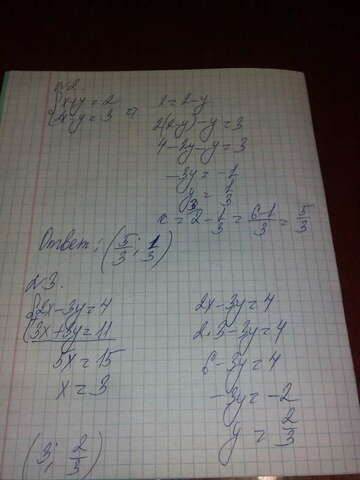 №2
{x+y=2
{2x-y=3 =>
x=2-y
2(2-y)-y=3
4-2y-y=3
-3y=-1
y=1/3
x=2-1/3=6-1/3=5/3
Ответ: (5/3; 1/3)
№3.
{2x-3y=4
{3x+3y=11
5x=15
x=3
2x-3y=4
2·3-3y=4
6-3y=4
-3y=-2
y=2/3
(3; 2/3)